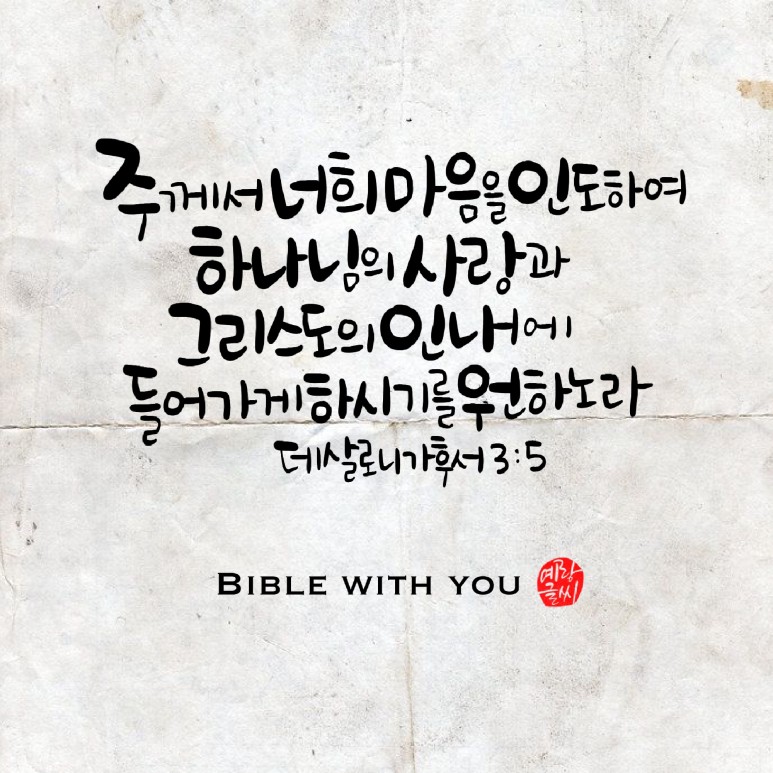 주께서 너희 마음을 인도하여
하나님의 사랑과
그리스도의 인내에
들어가게 하시기를 원하노라
데살로니가후서 3:5
BIBLE WITH YOU
예랑
글씨